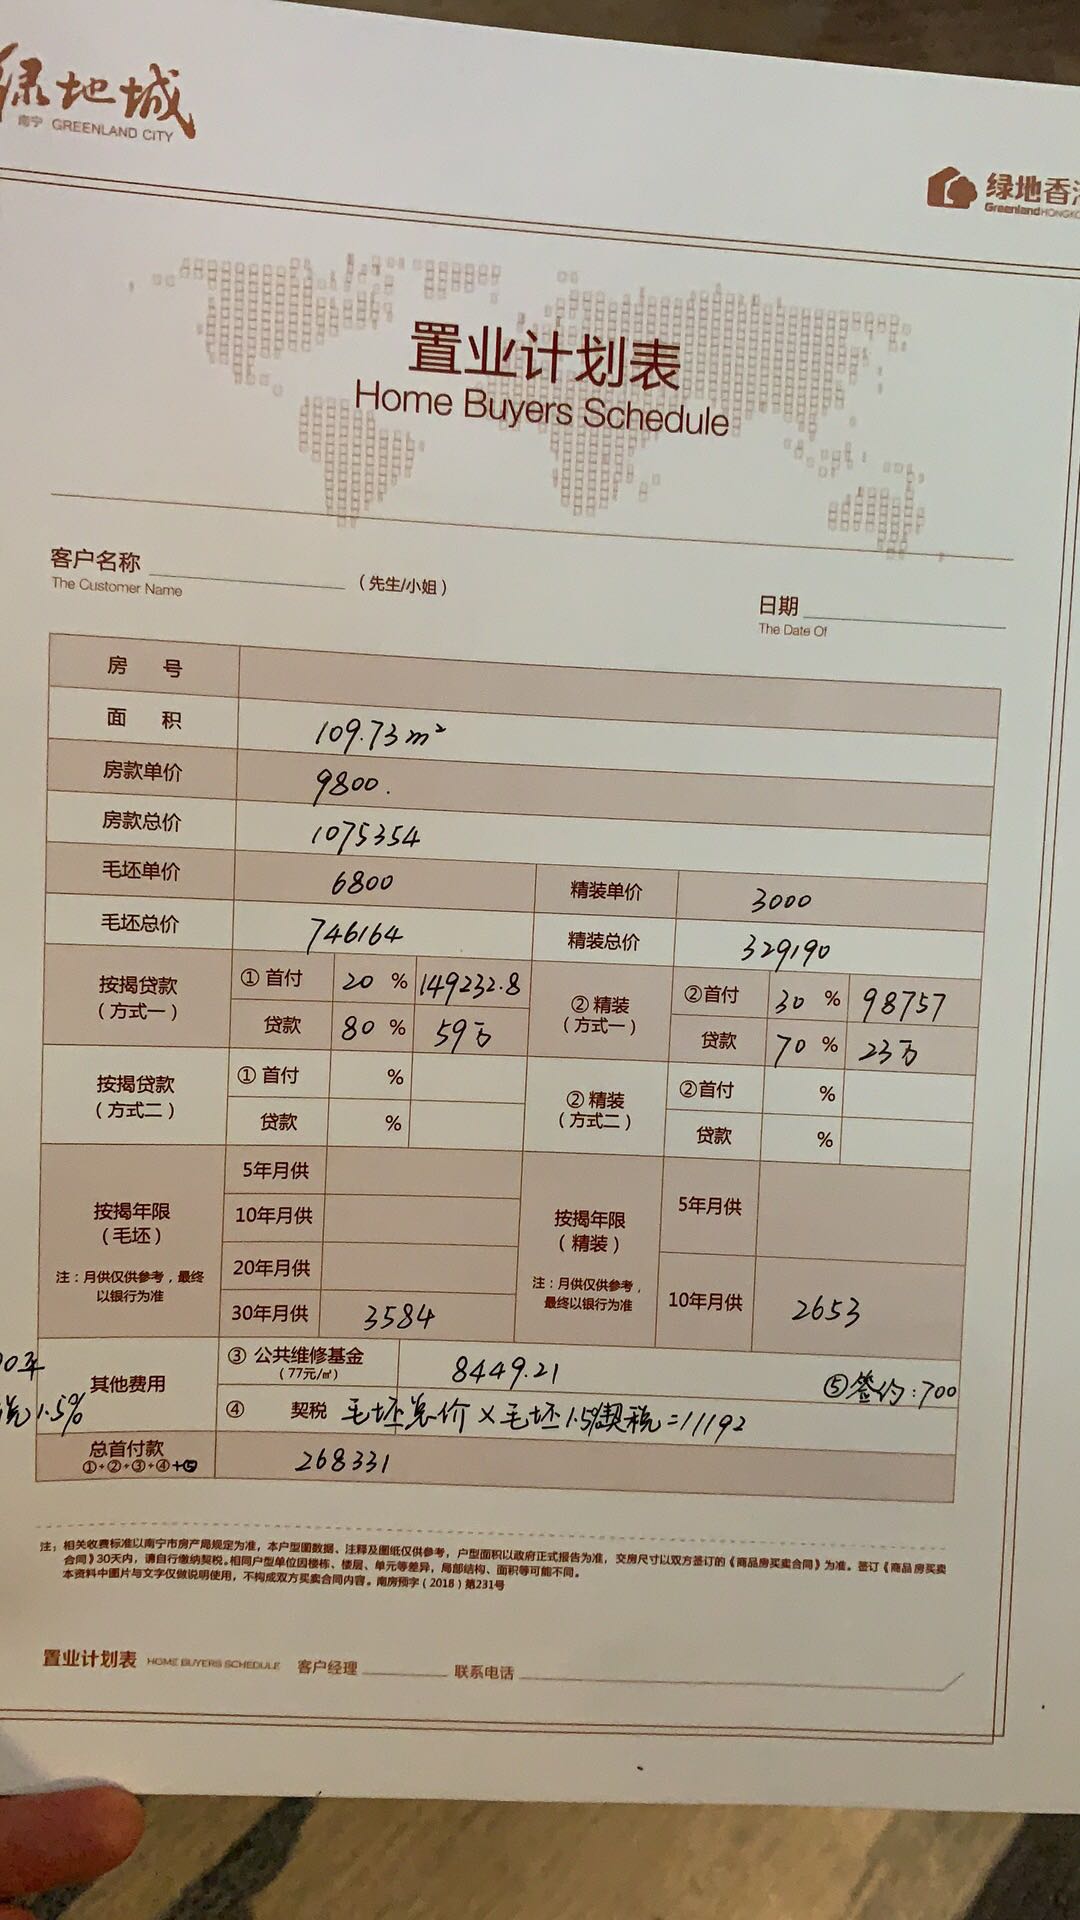 绿地城
南宁 GREENLAND CITY
绿地香
Greenland HONGKO
置业计划表
Home Buyers Schedule
客户名称 （先生/小姐）
The Customer Name
日期
The Date Of
房 号
面 积 109.73m²
房款单价 9800.
房款总价 1075354
毛坯单价 6800 精装单价 3000
毛坯总价 746164 精装总价 329190
按揭贷款（方式一） ①首付 20 % 149232.8 ②精装（方式一） ②首付 30 % 98757
贷款 80 % 59万 贷款 70 % 23万
按揭贷款（方式二） ①首付 % ②精装（方式二） ②首付 %
贷款 % 贷款 %
按揭年限（毛坯） 5年月供 按揭年限（精装） 5年月供
10年月供
20年月供
注：月供仅供参考，最终以银行为准 30年月供 3584 注：月供仅供参考，最终以银行为准 10年月供 2653
其他费用 ③公共维修基金（77元/㎡） 8449.21 ⑤签约:700
1.5% ④ 契税 毛坯总价×毛坯1.5%契税=11192
总首付款 ①+②+③+④+⑤ 268331
注：相关收费标准以南宁市房产局规定为准，本户型图数据、注释及图纸仅供参考，户型面积以政府正式报告为准，交房尺寸以双方签订的《商品房买卖合同》为准。签订《商品房买卖
合同》30天内，请自行缴纳契税。相同户型单位因楼栋、楼层、单元等差异，局部结构、面积等可能不同。
本资料中图片与文字仅做说明使用，不构成双方买卖合同内容。南房预字（2018）第231号
置业计划表 HOME BUYERS SCHEDULE 客户经理 联系电话